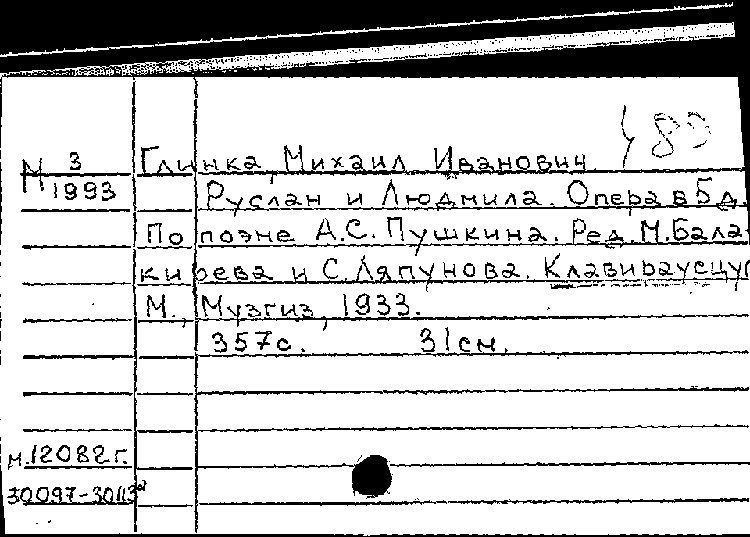 М 3 Глинка, Михаил Иванович 480
1993 Руслан и Людмила. Опера в 5 д.
По поэме А.С. Пушкина. Ред. М. Бала-
кирева и С. Ляпунова. Клавираусцуг
М., Музгиз, 1933.
357с. 31см.
м.12082г.
30097-30113